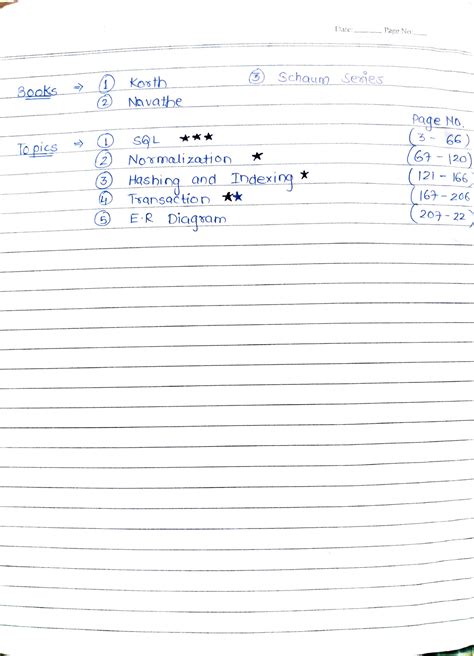 Date: Page No:
Books ⇒ ① Korth ③ Schaum Series
② Navathe
Page No.
Topics ⇒ ① SQL ★★★ (3 - 66)
② Normalization ★ (67 - 120)
③ Hashing and Indexing ★ (121 - 166
④ Transaction ★★ (167 - 206
⑤ E.R Diagram (207 - 22)